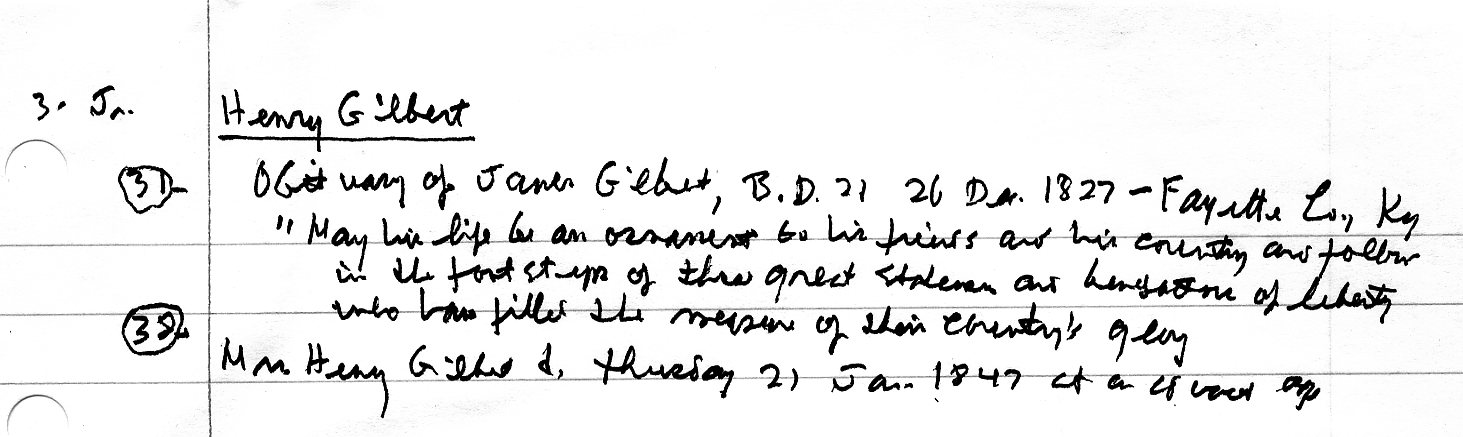 3. Jr. Henry Gilbert
37- Obituary of James Gilbert, B.D. 21 26 Dec. 1827 - Fayette Co., Ky
"May his life be an ornament to his friends and his country and follow
in the footsteps of those great statesmen and benefactors of liberty
who have filled the measure of their country's glory
38.
Mrs Henry Gilbert d. Thursday 21 Jan. 1847 at an advanced age